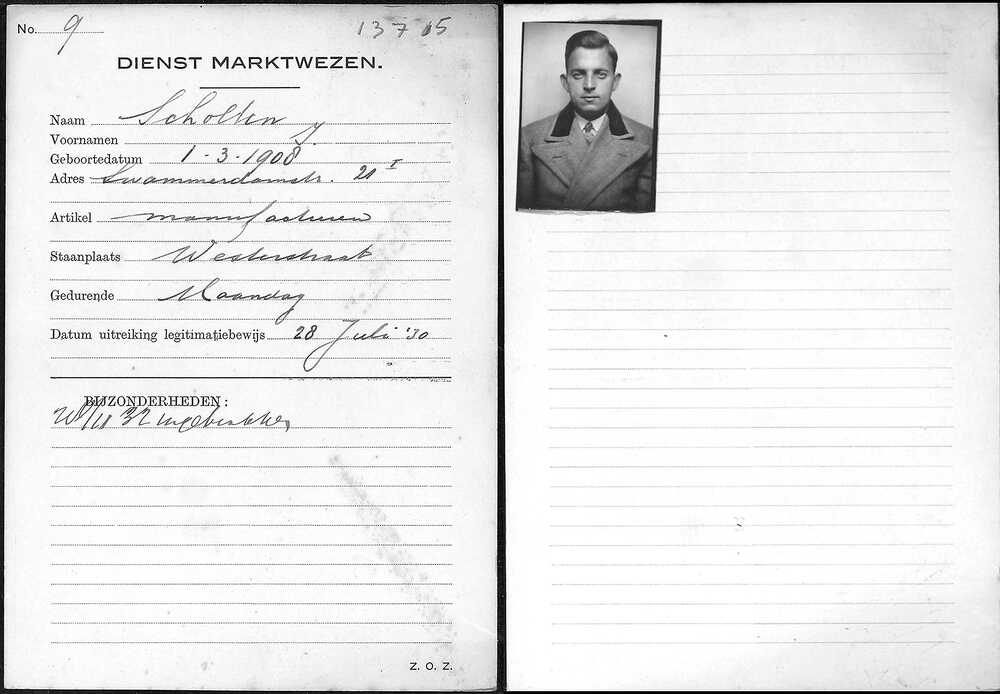 No. 9
13705
DIENST MARKTWEZEN.
Naam Scholten
Voornamen J.
Geboortedatum 1-3-1908
Adres Swammerdamstr. 20 I
Artikel manufacturen
Staanplaats Westerstraat
Gedurende Maandag
Datum uitreiking legitimatiebewijs 28 Juli '30
BIJZONDERHEDEN:
32 ingetrokken
Z. O. Z.